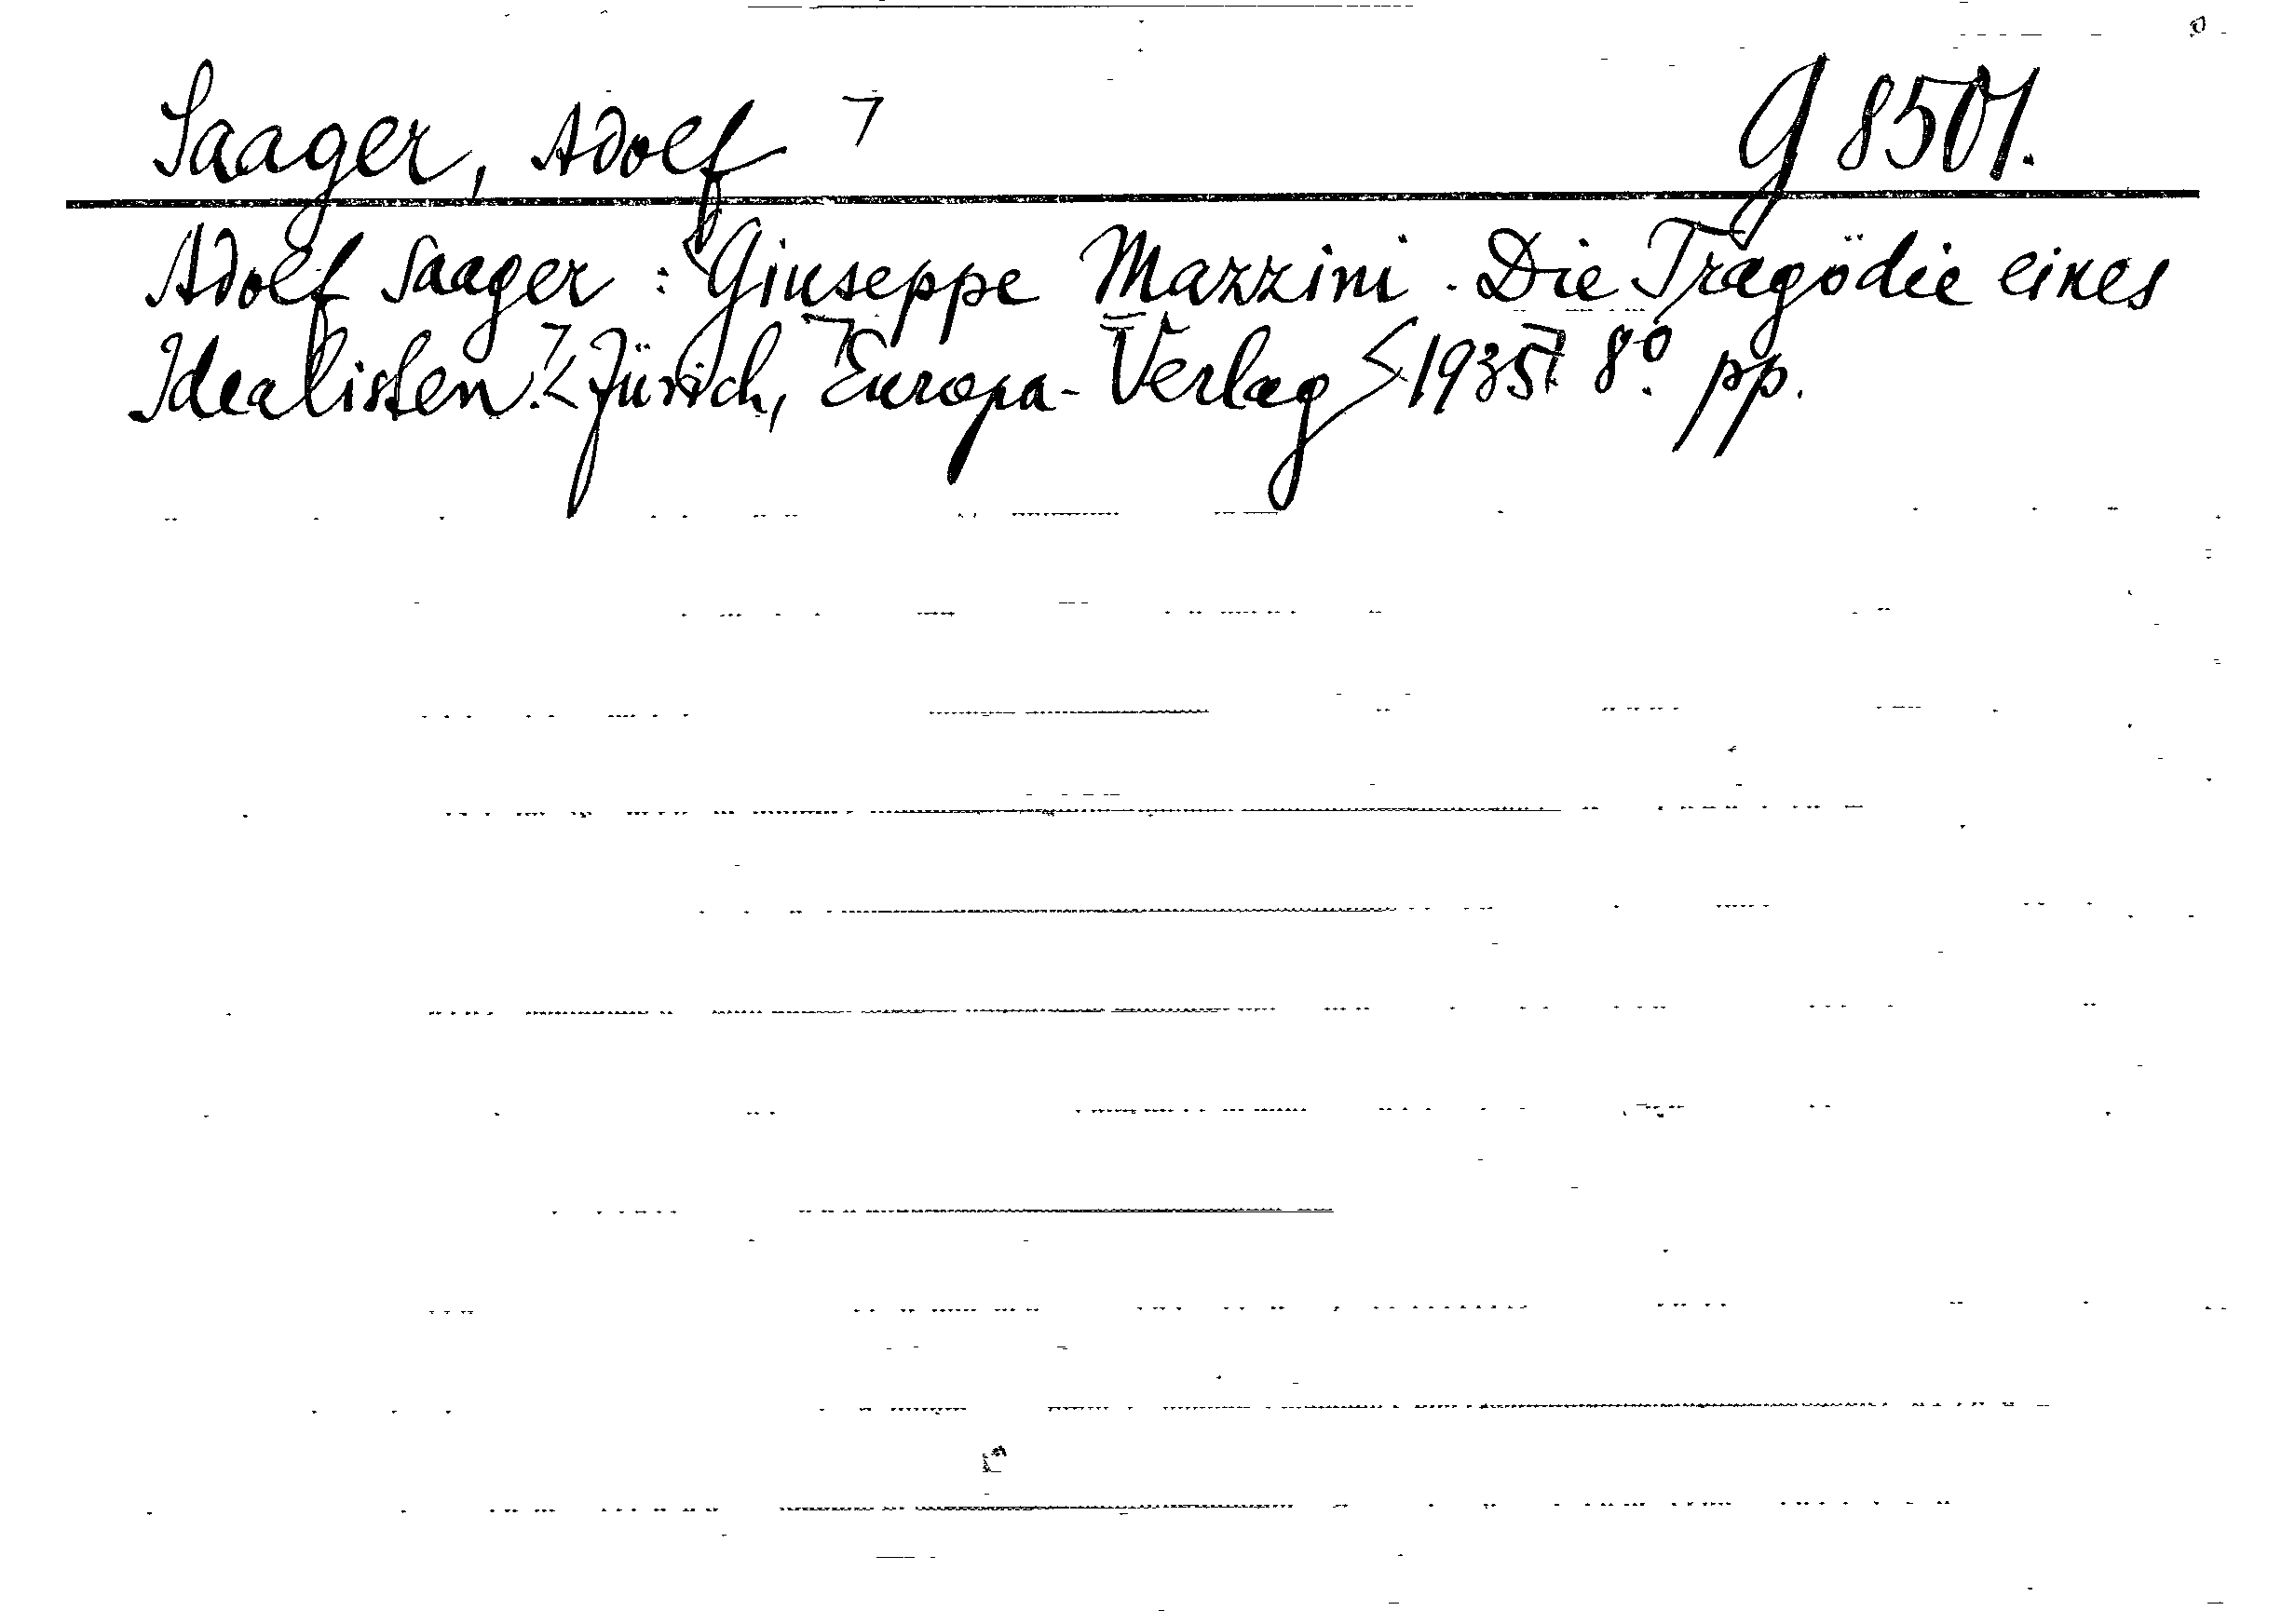 Saager, Adolf G 8501.
Adolf Saager : Giuseppe Mazzini. Die Tragödie eines
Idealisten. Zürich, Europa-Verlag 1935. 8° pp.